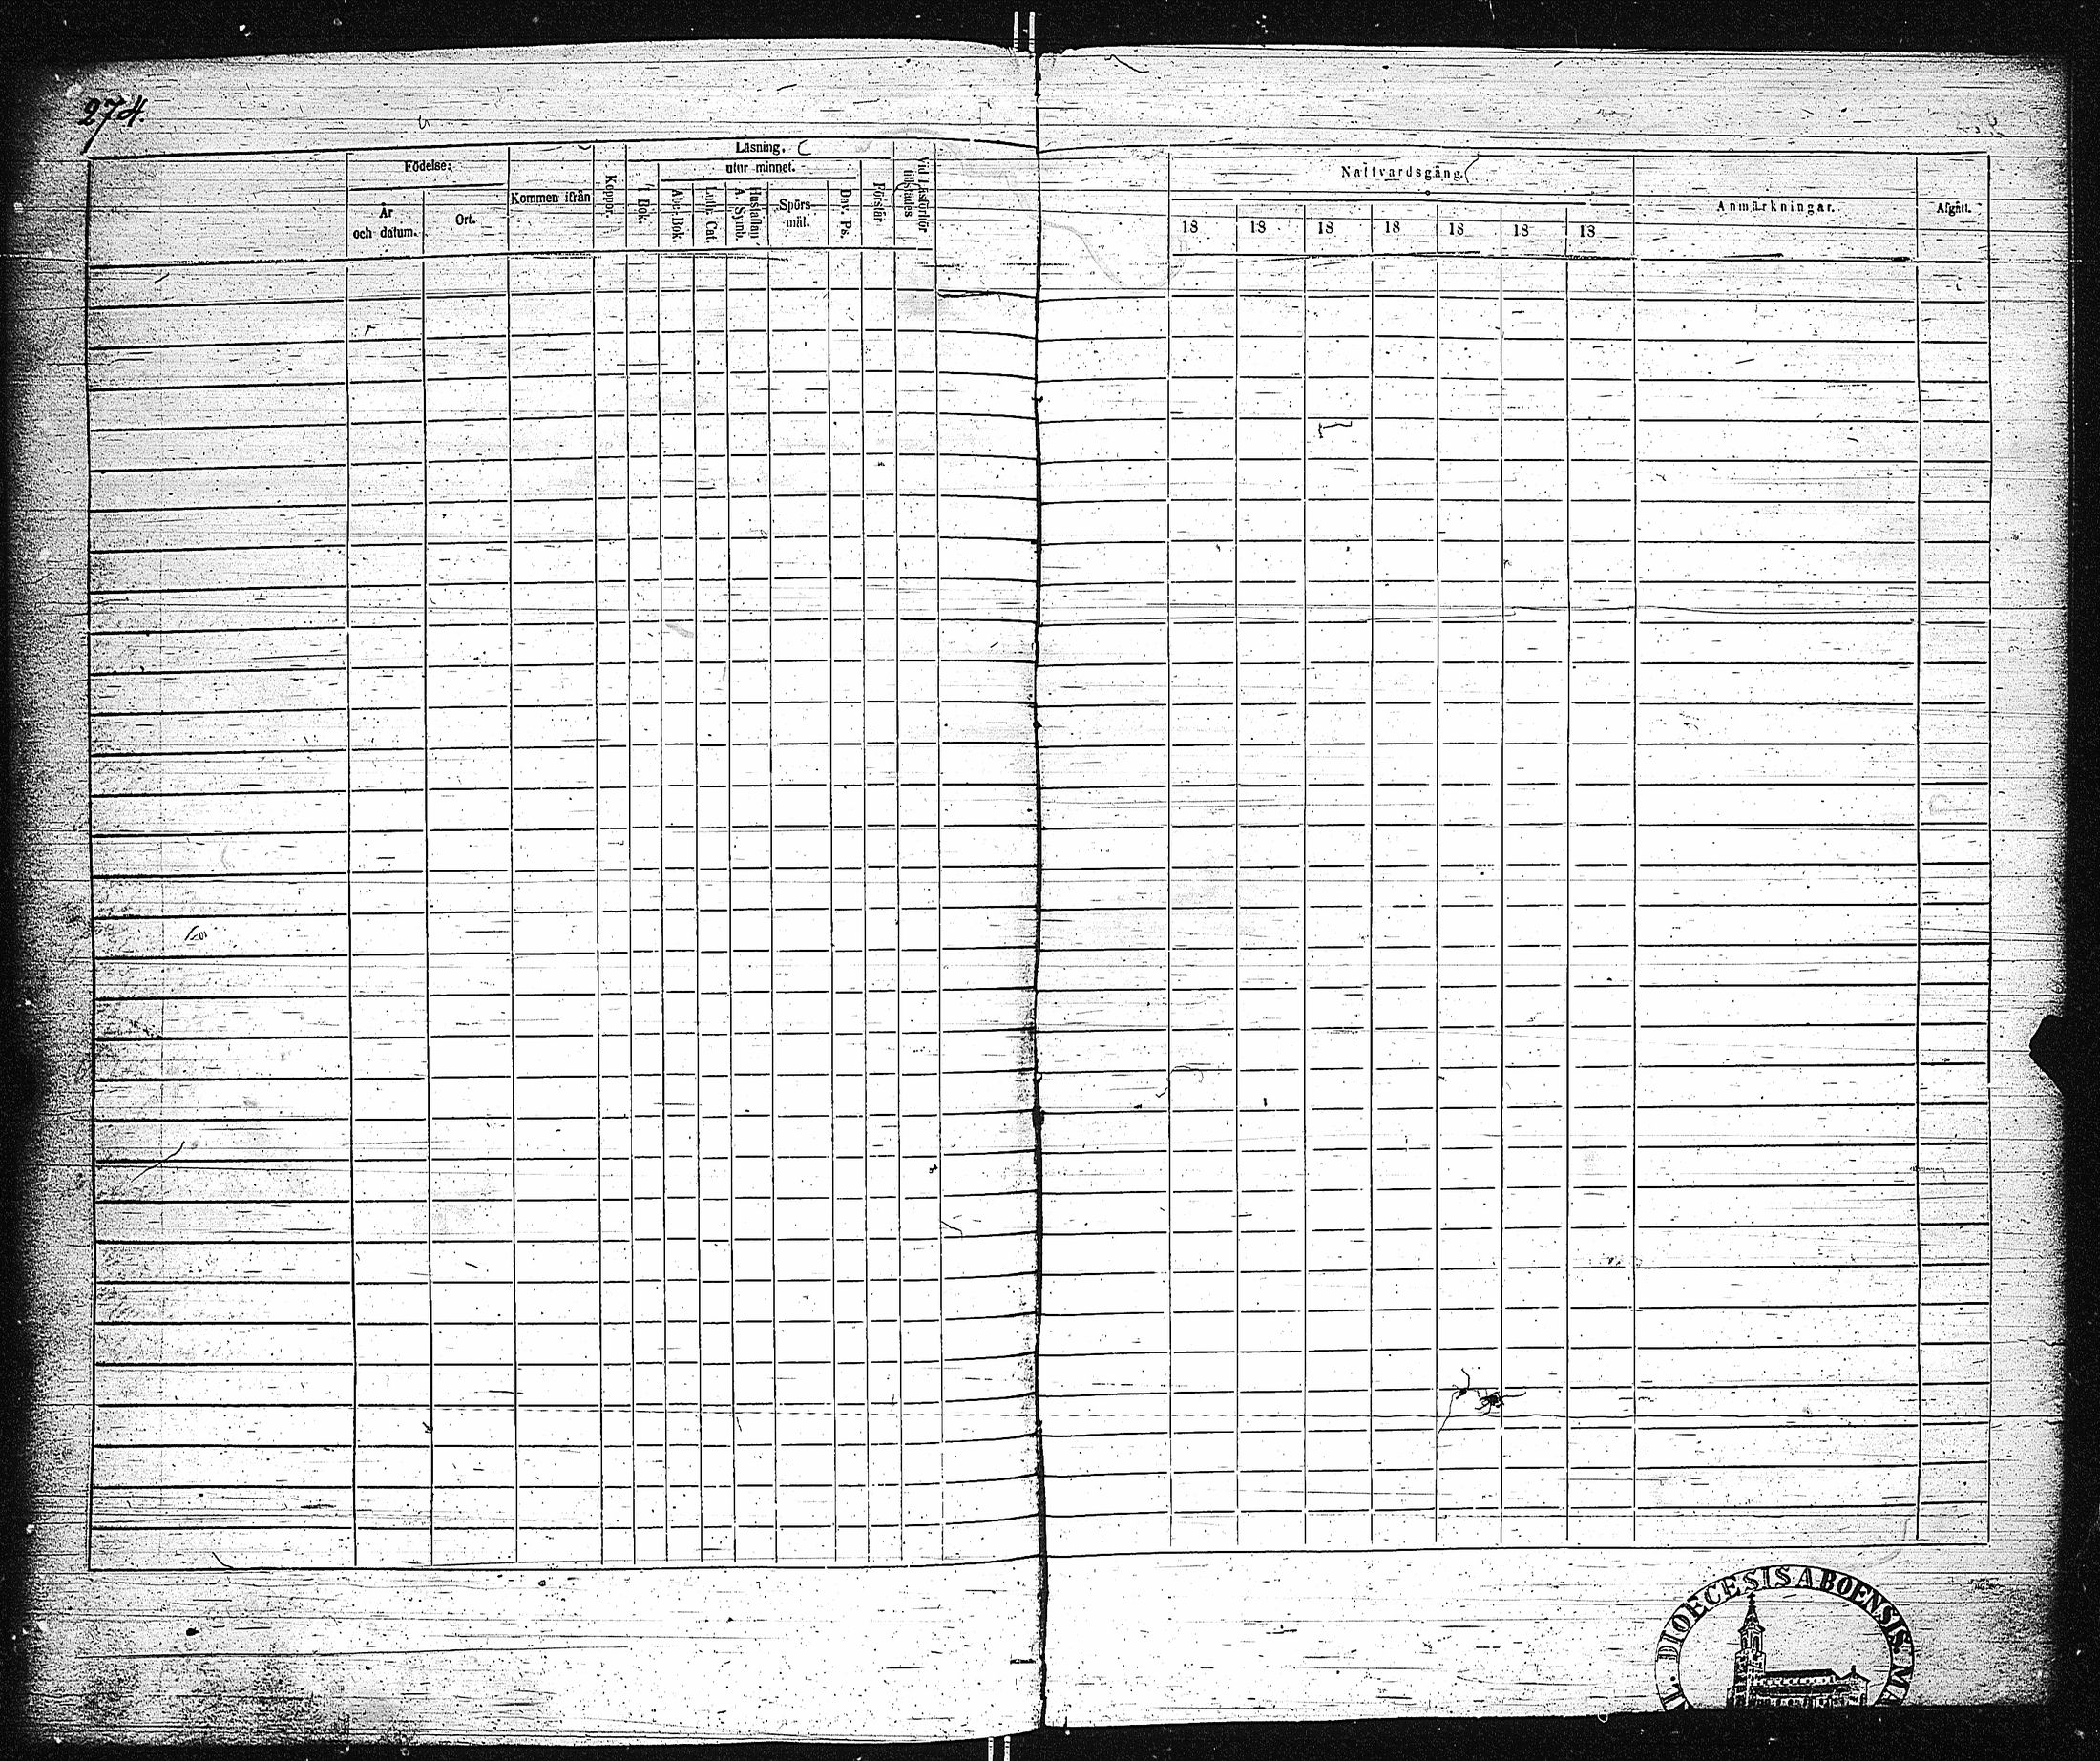 274.
Födelse:
År
och datum.
Ort.
Kommen ifrån
Koppor.
Läsning.
I Bok.
utur minnet.
Abc-Bok.
Luth. Cat.
Hustaflan
A. Symb.
Spörs-
mål.
Dav. Ps.
Förstår
Vid Läsförhör
tillstädes
Nattvardsgång.
18 18 18 18 18 18 18
Anmärkningar.
Afgått.
DIOECESIS ABOENSIS